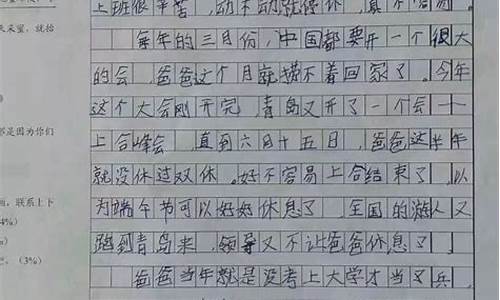 上班很辛苦，动不动就停休，真不容易。
每年的三月份，中国都要开一个很大
的会，爸爸这个月就捞不着回家了。今年
这个大会刚开完，青岛又开了一个会——
上合峰会，直到六月十五日，爸爸这半年
就没休过双休。好不容易上合结束了，以
为端午节可以好好休息了，全国的游人又
跑到青岛来，领导又不让爸爸休息了。
爸爸当年就是没考上大学才当了兵，
是因为你们
联系上下
4%）
（3%）